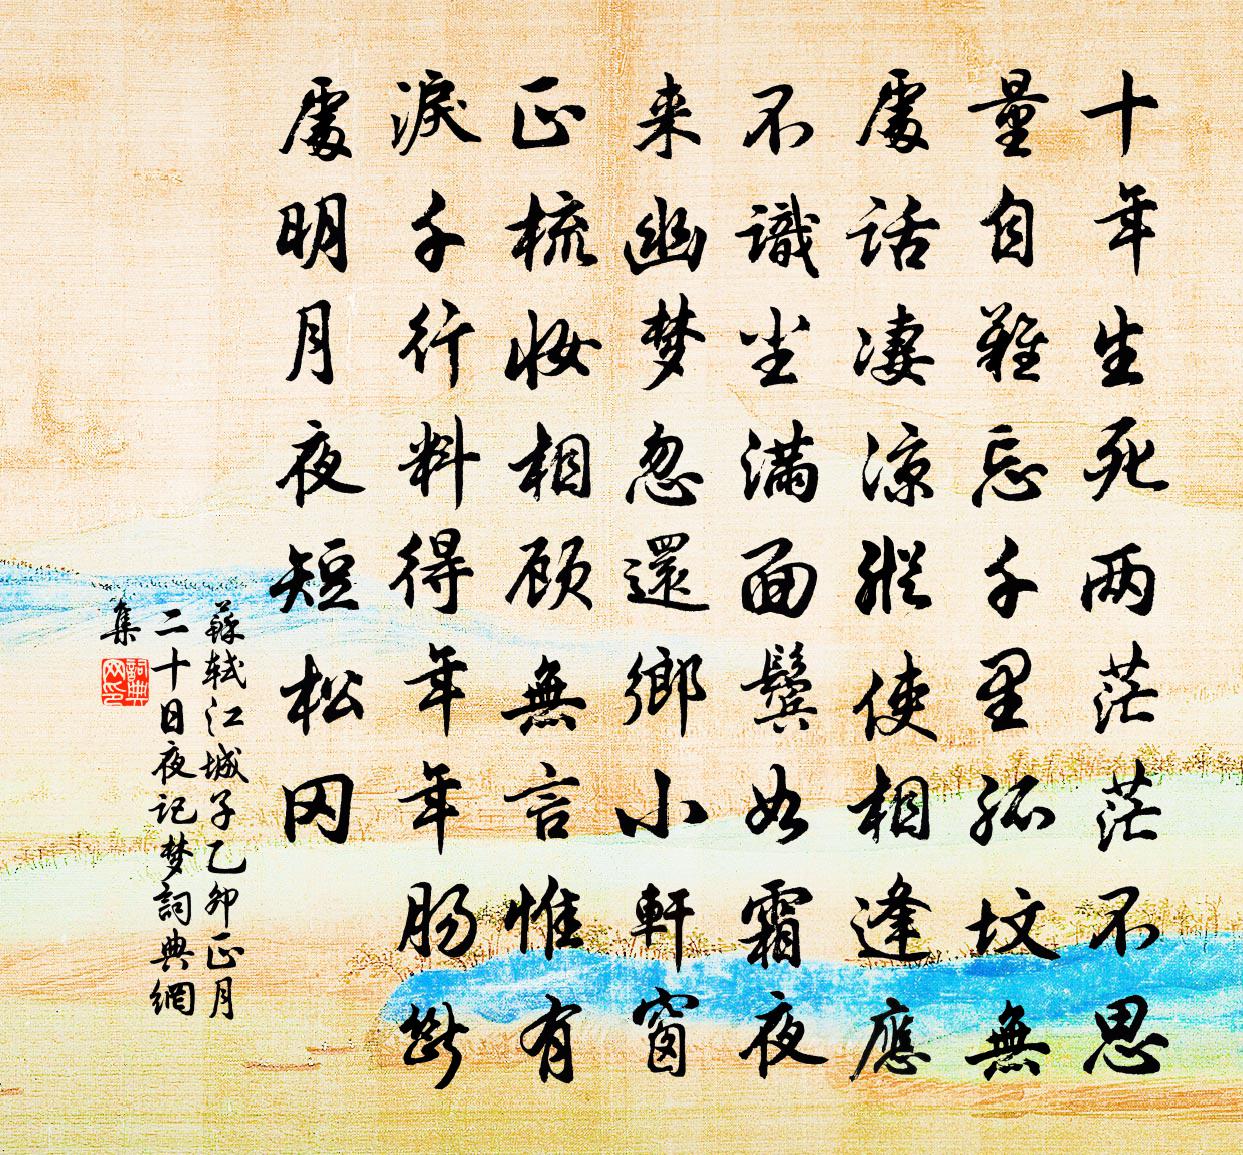 十年生死两茫茫不思
量自难忘千里孤坟無
處話凄涼縱使相逢應
不識尘满面鬓如霜夜
来幽梦忽還鄉小軒窗
正梳妆相顾無言惟有
淚千行料得年年肠斷
處明月夜短松冈
蘇轼江城子乙卯正月
二十日夜记梦詞典網
集
詞典
网印